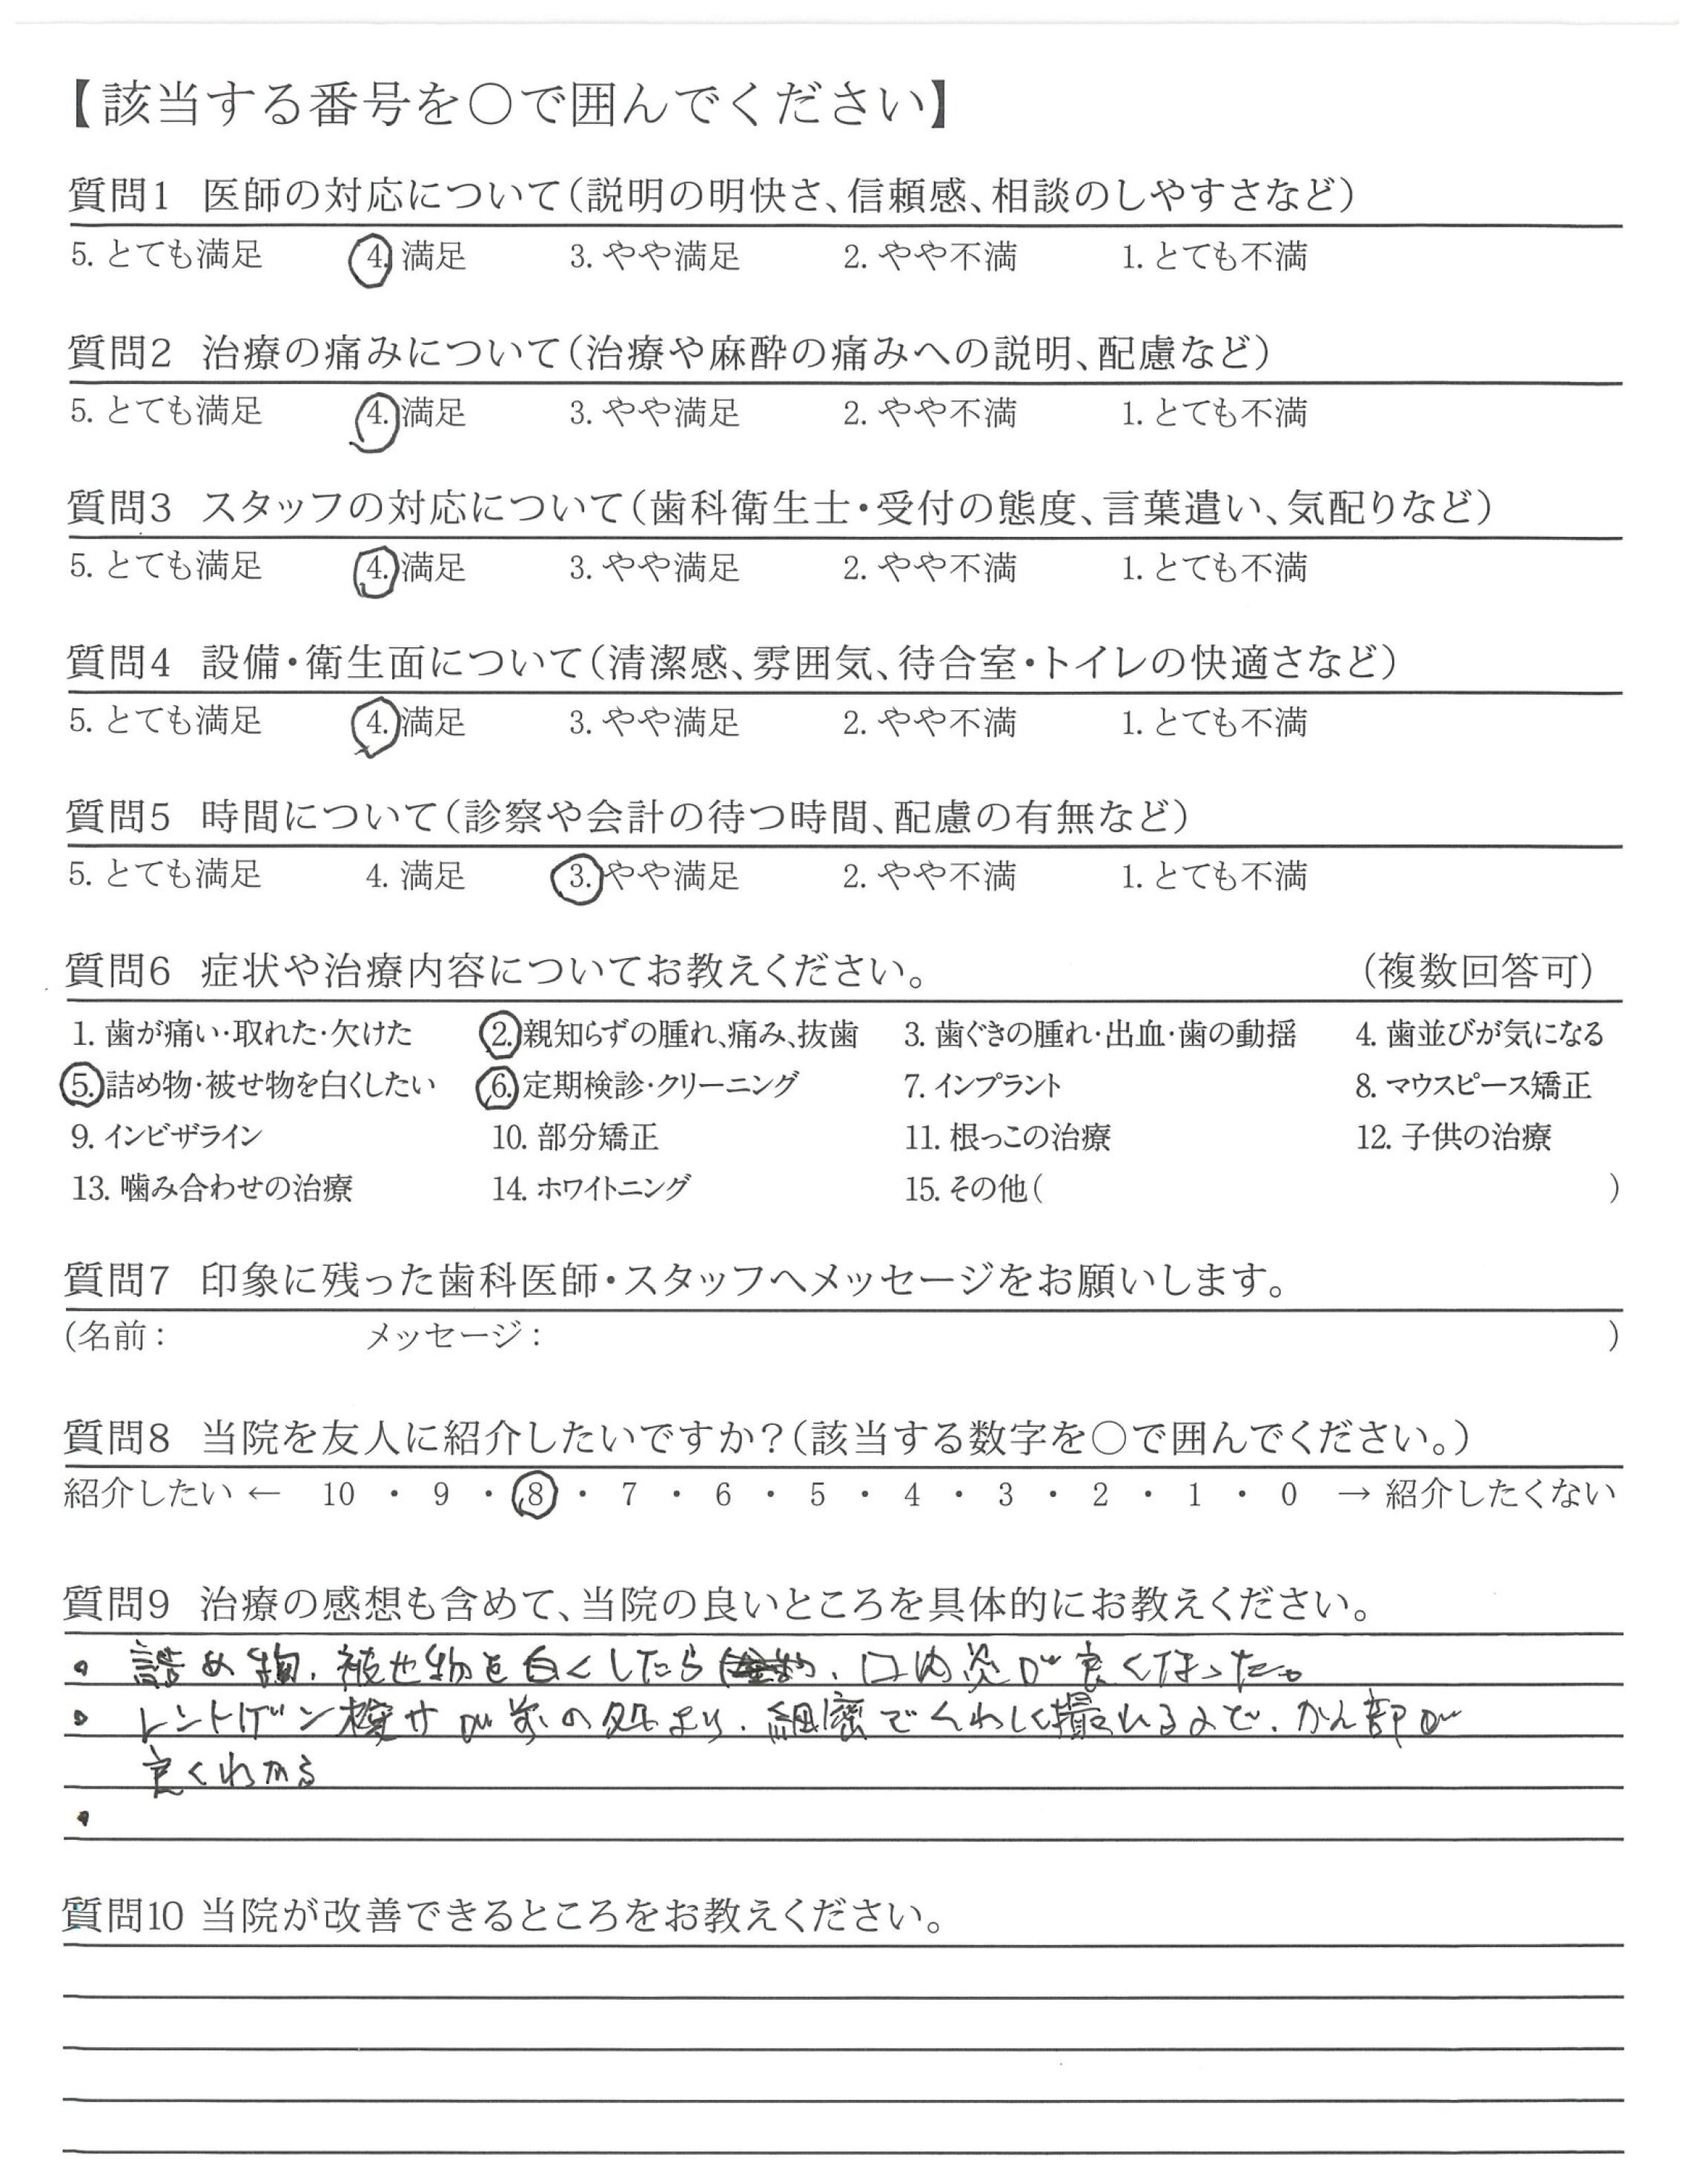 【該当する番号を〇で囲んでください】
質問1 医師の対応について(説明の明快さ、信頼感、相談のしやすさなど)
5. とても満足 4. 満足 3. やや満足 2. やや不満 1. とても不満
質問2 治療の痛みについて(治療や麻酔の痛みへの説明、配慮など)
5. とても満足 4. 満足 3. やや満足 2. やや不満 1. とても不満
質問3 スタッフの対応について(歯科衛生士・受付の態度、言葉遣い、気配りなど)
5. とても満足 4. 満足 3. やや満足 2. やや不満 1. とても不満
質問4 設備・衛生面について(清潔感、雰囲気、待合室・トイレの快適さなど)
5. とても満足 4. 満足 3. やや満足 2. やや不満 1. とても不満
質問5 時間について(診察や会計の待つ時間、配慮の有無など)
5. とても満足 4. 満足 3. やや満足 2. やや不満 1. とても不満
質問6 症状や治療内容についてお教えください。 (複数回答可)
1. 歯が痛い・取れた・欠けた 2. 親知らずの腫れ、痛み、抜歯 3. 歯ぐきの腫れ・出血・歯の動揺 4. 歯並びが気になる
5. 詰め物・被せ物を白くしたい 6. 定期検診・クリーニング 7. インプラント 8. マウスピース矯正
9. インビザライン 10. 部分矯正 11. 根っこの治療 12. 子供の治療
13. 噛み合わせの治療 14. ホワイトニング 15. その他( )
質問7 印象に残った歯科医師・スタッフへメッセージをお願いします。
(名前: メッセージ: )
質問8 当院を友人に紹介したいですか?(該当する数字を〇で囲んでください。)
紹介したい ← 10 ・ 9 ・ 8 ・ 7 ・ 6 ・ 5 ・ 4 ・ 3 ・ 2 ・ 1 ・ 0 → 紹介したくない
質問9 治療の感想も含めて、当院の良いところを具体的にお教えください。
・ 詰め物、被せ物を白くしたら、口内炎が良くなった。
・ レントゲン検サが の処より、細密でくわしく撮れるので、かん部が
良くわかる
・
質問10 当院が改善できるところをお教えください。